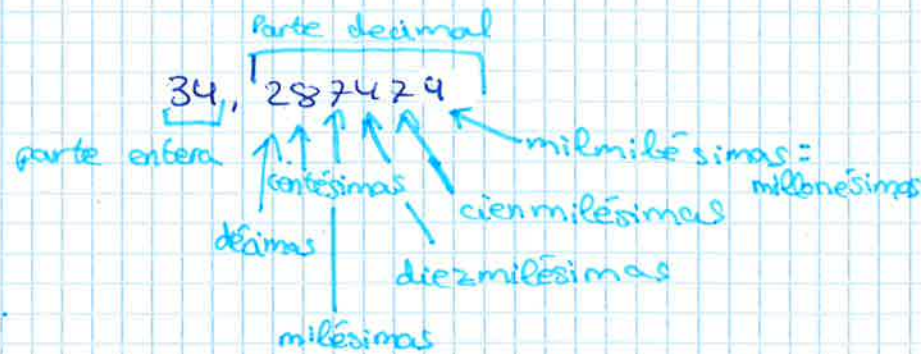 Parte decimal
34, 287479
parte entera
milmilésimas =
millonésimas
centésimas
cienmilésimas
décimas
diezmilésimas
milésimas